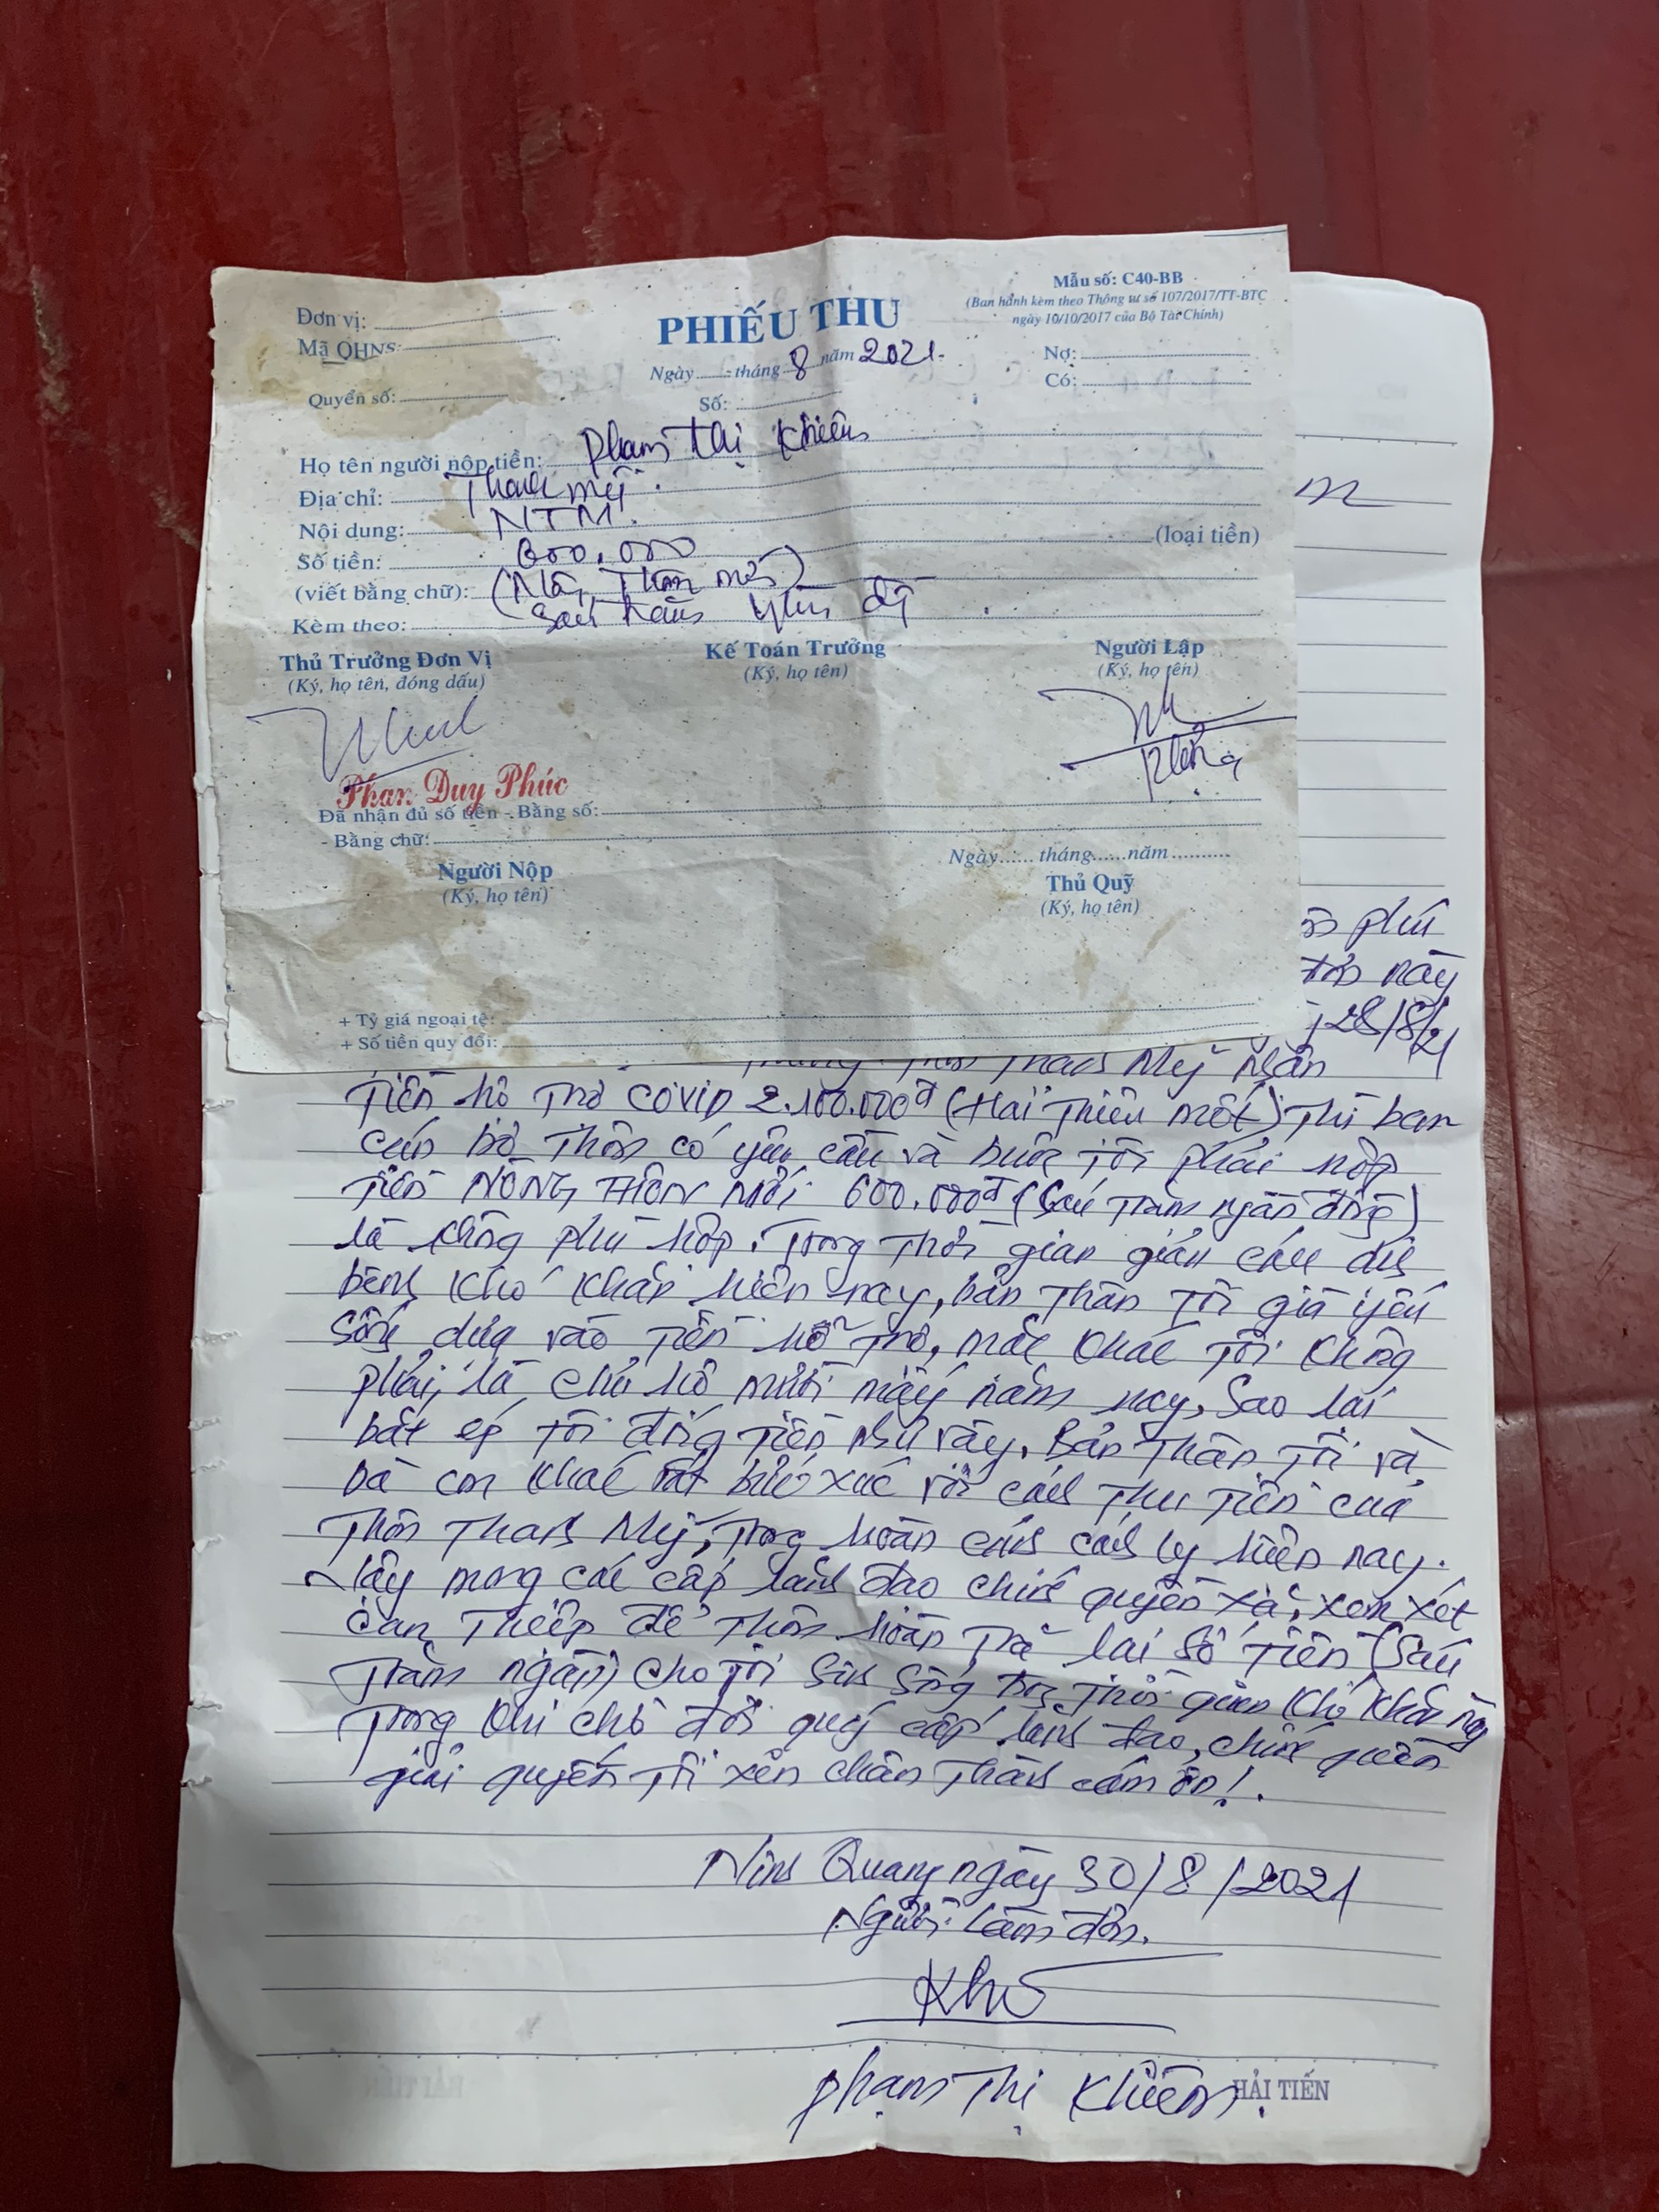 Mẫu số: C40-BB
(Ban hành kèm theo Thông tư số 107/2017/TT-BTC
ngày 10/10/2017 của Bộ Tài Chính)
Đơn vị:
Mã QHNS:
Quyển số:
PHIẾU THU
Ngày tháng 8 năm 2021.
Số:
Nợ:
Có:
Họ tên người nộp tiền: Phạm Thị Khiêm
Địa chỉ: Thanh Mỹ.
Nội dung: NTM.
Số tiền: 600.000 (loại tiền)
(viết bằng chữ): (Nông Thôn mới)
Kèm theo: Sáu trăm
Thủ Trưởng Đơn Vị
(Ký, họ tên, đóng dấu)
Kế Toán Trưởng
(Ký, họ tên)
Người Lập
(Ký, họ tên)
Phan Duy Phúc
Đã nhận đủ số tiền - Bằng số:
- Bằng chữ:
Ngày tháng năm
Người Nộp
(Ký, họ tên)
Thủ Quỹ
(Ký, họ tên)
+ Tỷ giá ngoại tệ:
+ Số tiền quy đổi:
phú
đơn này
28/8/21
Thôn Thanh Mỹ Nhận
Tiền hỗ Trợ COVID 2.100.000đ (Hai Triệu một) Thì ban
cán bộ Thôn có yêu cầu và buộc Tôi phải nộp
Tiền NÔNG THÔN MỚI 600.000đ (Sáu Trăm ngàn đồng)
là không phù hợp. Trong Thời gian giản cách dịch
bệnh khó khăn hiện nay, bản Thân Tôi già yếu
sống dựa vào Tiền hỗ Trợ, mặt khác Tôi không
phải là chủ hộ mười mấy năm nay, sao lại
bắt ép Tôi đóng Tiền như vậy. Bản Thân Tôi và
bà con khác rất bức xúc với cách Thu Tiền của
Thôn Thanh Mỹ, Trong hoàn cảnh cách ly hiện nay.
Vậy mong các cấp lãnh đạo chính quyền xã, xem xét
can Thiệp để Thôn hoàn Trả lại số Tiền (Sáu
Trăm ngàn) cho Tôi sinh sống trong Thời gian khó khăn này
Trong khi chờ đợi quý cấp lãnh đạo, chính quyền
giải quyết Tôi xin chân Thành cám ơn!.
Ninh Quang ngày 30/8/2021
Người làm đơn.
Phạm Thị Khiêm
HẢI TIẾN